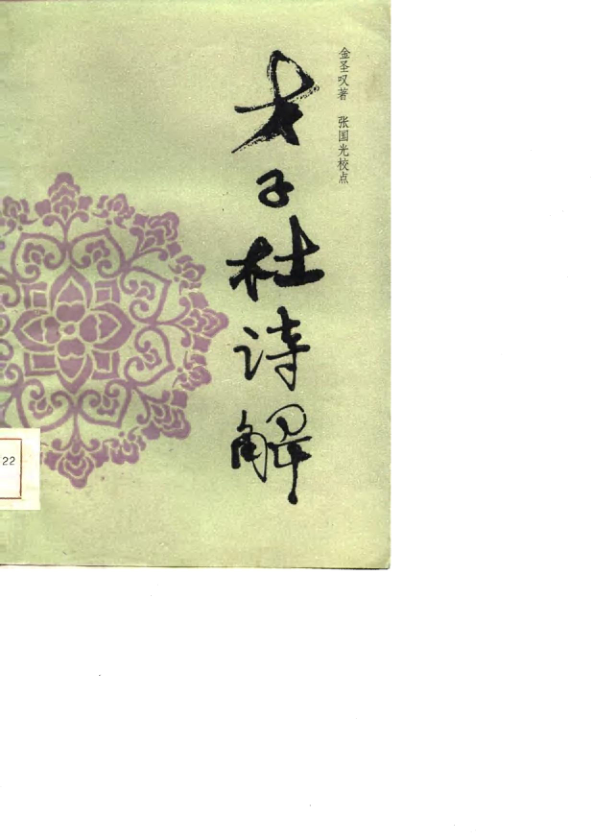 金圣叹著 张国光校点
才子杜诗解
22